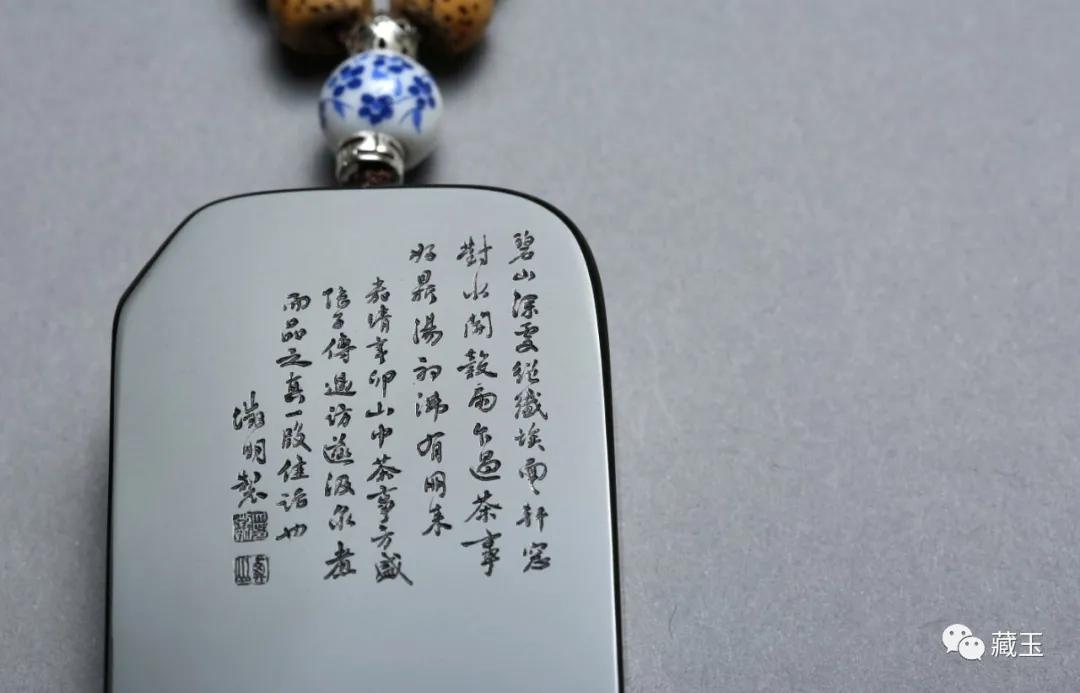 碧山深處絕纖埃面〻軒窓
對水開穀雨乍過茶事
好鼎湯初沸有朋来
嘉靖辛卯山中茶事方盛
陸子傳過訪遂汲泉煮
而品之真一段佳話也
徵明製
藏玉